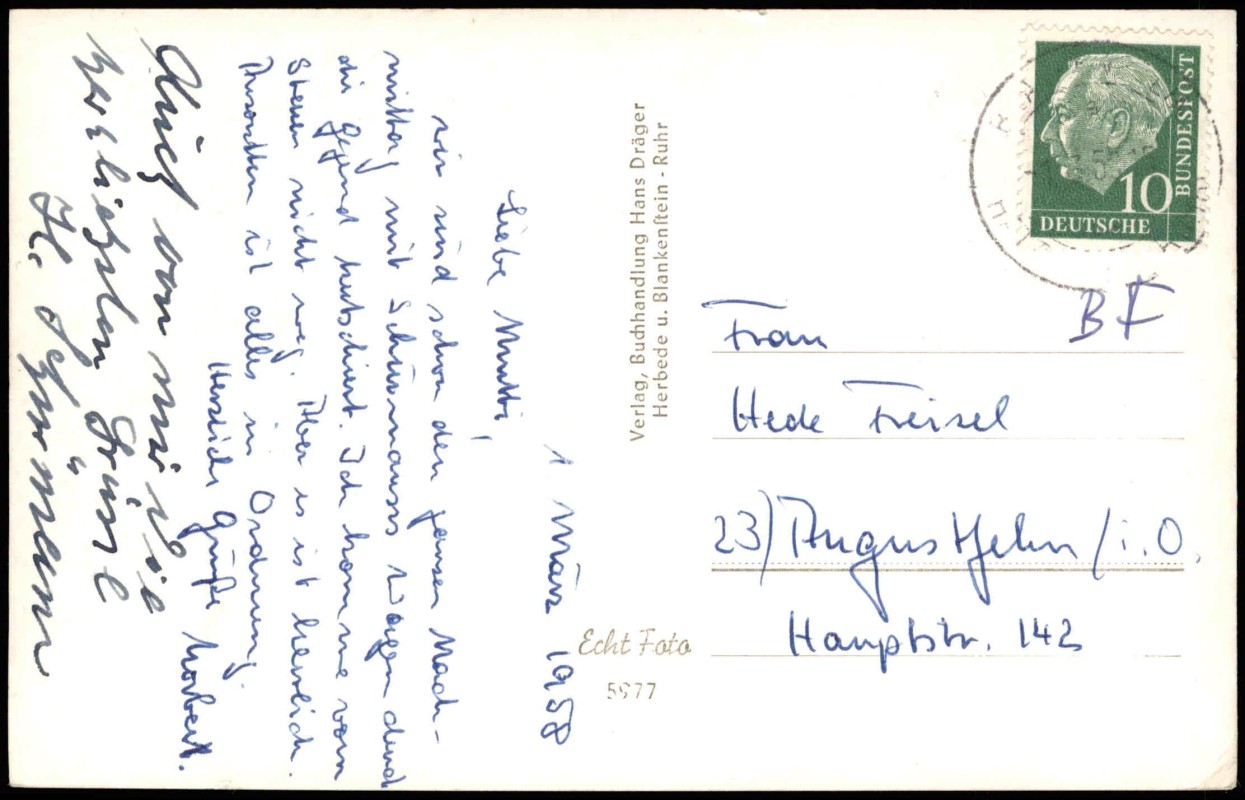 1 März 1958
Liebe Mutti,
wir sind schon den ganzen Nach-
mittag mit Schürmanns Wagen durch
die Gegend kutschiert. Ich komme vom
Steuer nicht weg. Aber es ist herrlich.
Ansonsten ist alles in Ordnung.
Herzliche Grüße Norbert.
Auch von mir die
herzlichsten Grüße
H. Schürmann
Verlag, Buchhandlung Hans Dräger
Herbede u. Blankenstein - Ruhr
Echt Foto
5977
10
DEUTSCHE
BUNDESPOST
BF
Frau
Hede Freisel
23) Augustfehn / i. O.
Hauptstr. 142